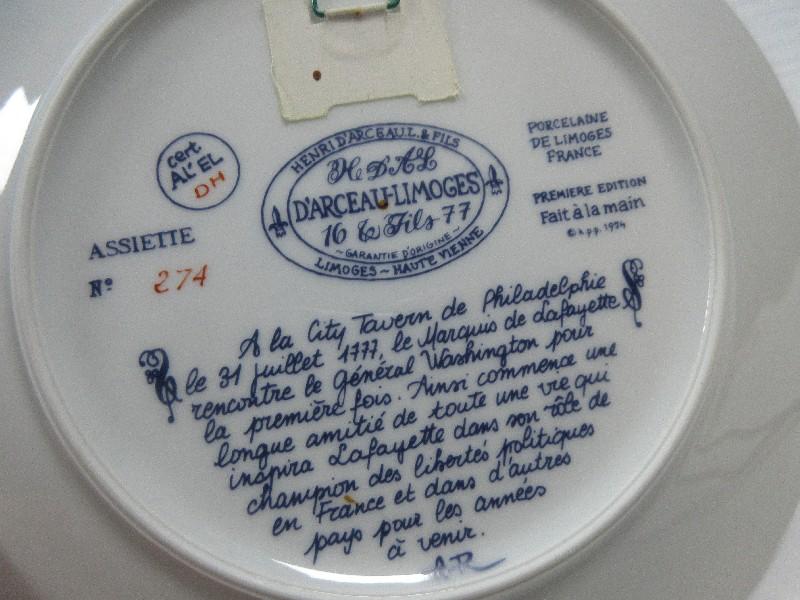 cert
AL'EL
DH
HENRI D'ARCEAU L. & FILS
H. DAL
D'ARCEAU-LIMOGES
16 & Fils 77
~GARANTIE D'ORIGINE~
LIMOGES ~ HAUTE VIENNE
PORCELAINE
DE LIMOGES
FRANCE
PREMIERE EDITION
Fait à la main
ASSIETTE
No 274
A la City Tavern de Philadelphie
le 31 juillet 1777, le Marquis de Lafayette
rencontre le Général Washington pour
la première fois. Ainsi commence une
longue amitié de toute une vie qui
inspira Lafayette dans son rôle de
champion des libertés politiques
en France et dans d'autres
pays pour les années
à venir.
A-R